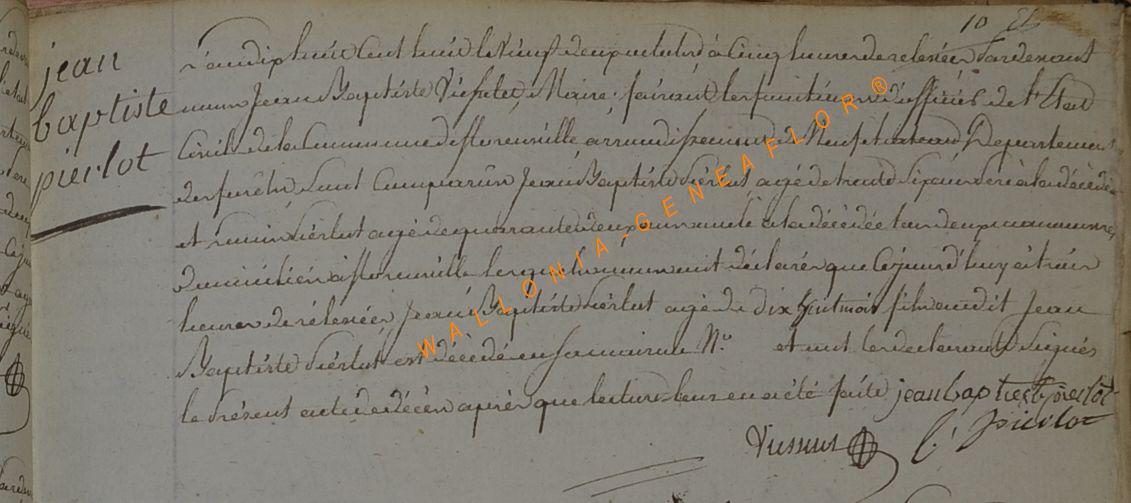 10
jean
baptiste
pierlot
L'an dix huit cent huit le vingt deux octobre à cinq heures de relevée Pardevant
nous Jean Baptiste Maire faisant les fonctions d'officier de l'Etat
Civil de la Commune de florenville arrondissement de Neufchateau Departement
des forêts sont Comparus Jean Baptiste Pierlot agé de trente Six ans père à la décédée
et Pierlot agé de quarante deux ans oncle à la décédée tous deux
domiciliés à florenville lesquels nous ont déclarés que Cejourd'huy à trois
heures de rélevée Jean Baptiste Pierlot agé de dix huit mois fils audit Jean
Baptiste Pierlot est décédé en sa maison N.º et ont les declarants Signés
le Présent acte de décès après que lecture leur en a été faite jean baptiste pierlot
pierlot
WALLONIA-GENEAFLOR®